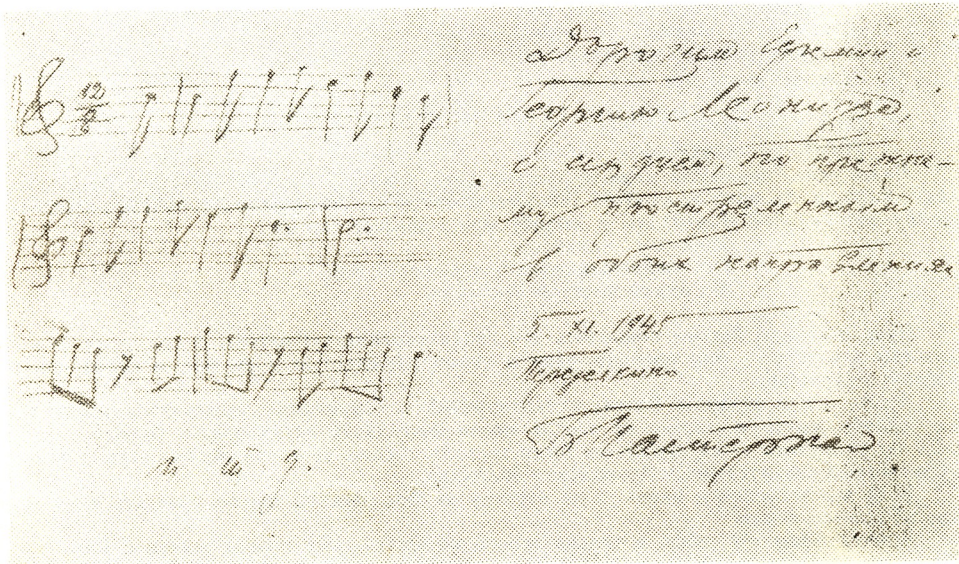 12
8
и т д.
Дорогим Ефемии и
Георгию Леонидзе,
с сердцем, по прежне-
му простреленным
в обоих направлениях
5. XI. 1945
Переделкино
Б Пастернак